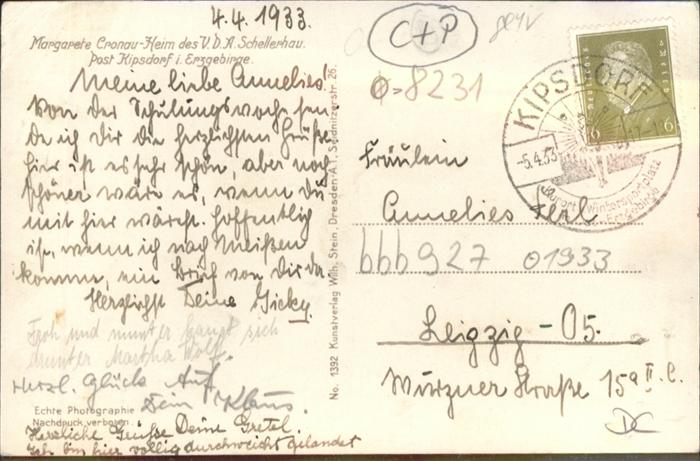 4.4.1933.
Margarete Cronau-Heim des V.D.A. Schellerhau.
Post Kipsdorf i. Erzgebirge.
Meine liebe Annelies!
Von der Schulungswoche sen
de ich Dir die herzlichsten Grüße
hier ist es sehr schön, aber noch
schöner wäre es, wenn du
mit hier wärest. Hoffentlich
ist, wenn ich nach Meißen
komme, ein Brief von Dir da
Herzlichst Deine Gicky.
Froh und munter
drunter Martha Wolf.
Herzl. Glück Auf
Dein Klaus.
Echte Photographie
Nachdruck verboten
Herzliche Grüße Deine Gretel.
Ich bin hier völlig durchweicht gelandet
No. 1392 Kunstverlag Wilh. Stein, Dresden-A.1, Seidnitzerstr. 26.
C+P
0-8231
Fräulein
Annelies
bbb927 01933
Leipzig-O5.
Wurzner Straße 15a II. l.
DC
KIPSDORF
-5.4.33
Kurort Wintersportplatz
Erzgebirge
6 6